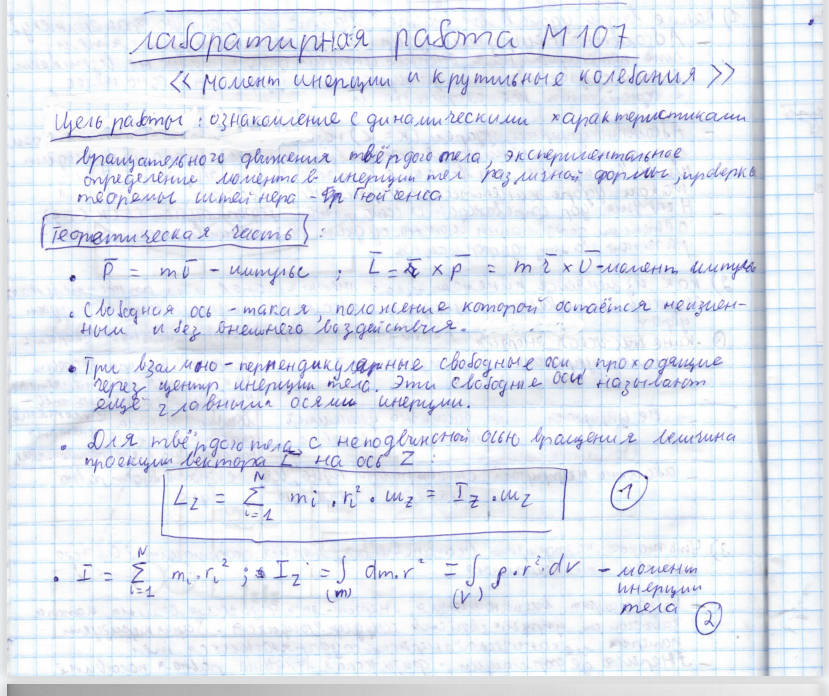 лаборатирная работа М107
<< Момент инерции и крутильные колебания >>
Цель работы: ознакомление с динамическими характеристиками
вращательного движения твёрдого тела, экспериментальное
определение моментов инерции тел различной формы, проверка
теоремы штейнера - Гюйгенса
Теоретическая часть :
• P̄ = mῡ - импульс ; L̄ = r̄ × p̄ = m r̄ × ῡ - момент импульса
• Свободная ось - такая, положение которой остаётся неизмен-
ным и без внешнего воздействия.
• Три взаимно-перпендикулярные свободные оси, проходящие
через центр инерции тела. Эти свободные оси называют
ещё главными осями инерции.
• Для твёрдого тела с неподвижной осью вращения величина
проекции вектора L̄ на ось Z :
L_z = Σ_{i=1}^{N} m_i · r_i² · ω_z = I_z · ω_z (1)
• I = Σ_{i=1}^{N} m_i · r_i² ; I_z = ∫_{(m)} dm · r² = ∫_{(V)} ρ · r² · dv - момент
инерции
тела (2)